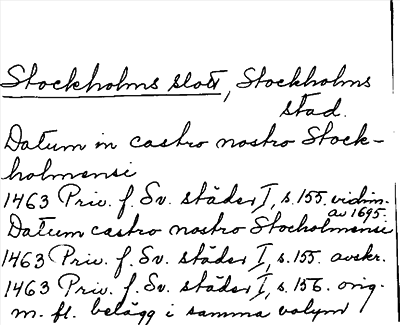 Stockholms slott, Stockholms
stad.
Datum in castro nostro Stock-
holmensi
1463 Priv. f. Sv. städer I, s. 155. vidim.
av 1695.
Datum castro nostro Stocholmensi
1463 Priv. f. Sv. städer I, s. 155. avskr.
1463 Priv. f. Sv. städer I, s. 156. orig.
m. fl. belägg i samma volym